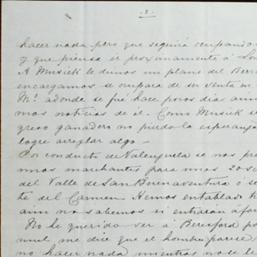 hacer nada pero que seguirá ocupando
y que piensa ir proximamente á
A Musick le dimos un plano del
encargamos se ocupara de su venta en
Mo. adonde se fué hace pocos dias
mos noticias de él. Como Musick
ganadero no pierdo la esperanza
logre arreglar algo -
Por conducto de Valenzuela se nos
mros marchantes para unos 20
del Valle de San Buenaventura ó
te del Carmen. Hemos entablado
aun no sabemos si entrarán á
No he querido ver á Beresford
me dice que el hombre parece
no hacer nada mientras no le